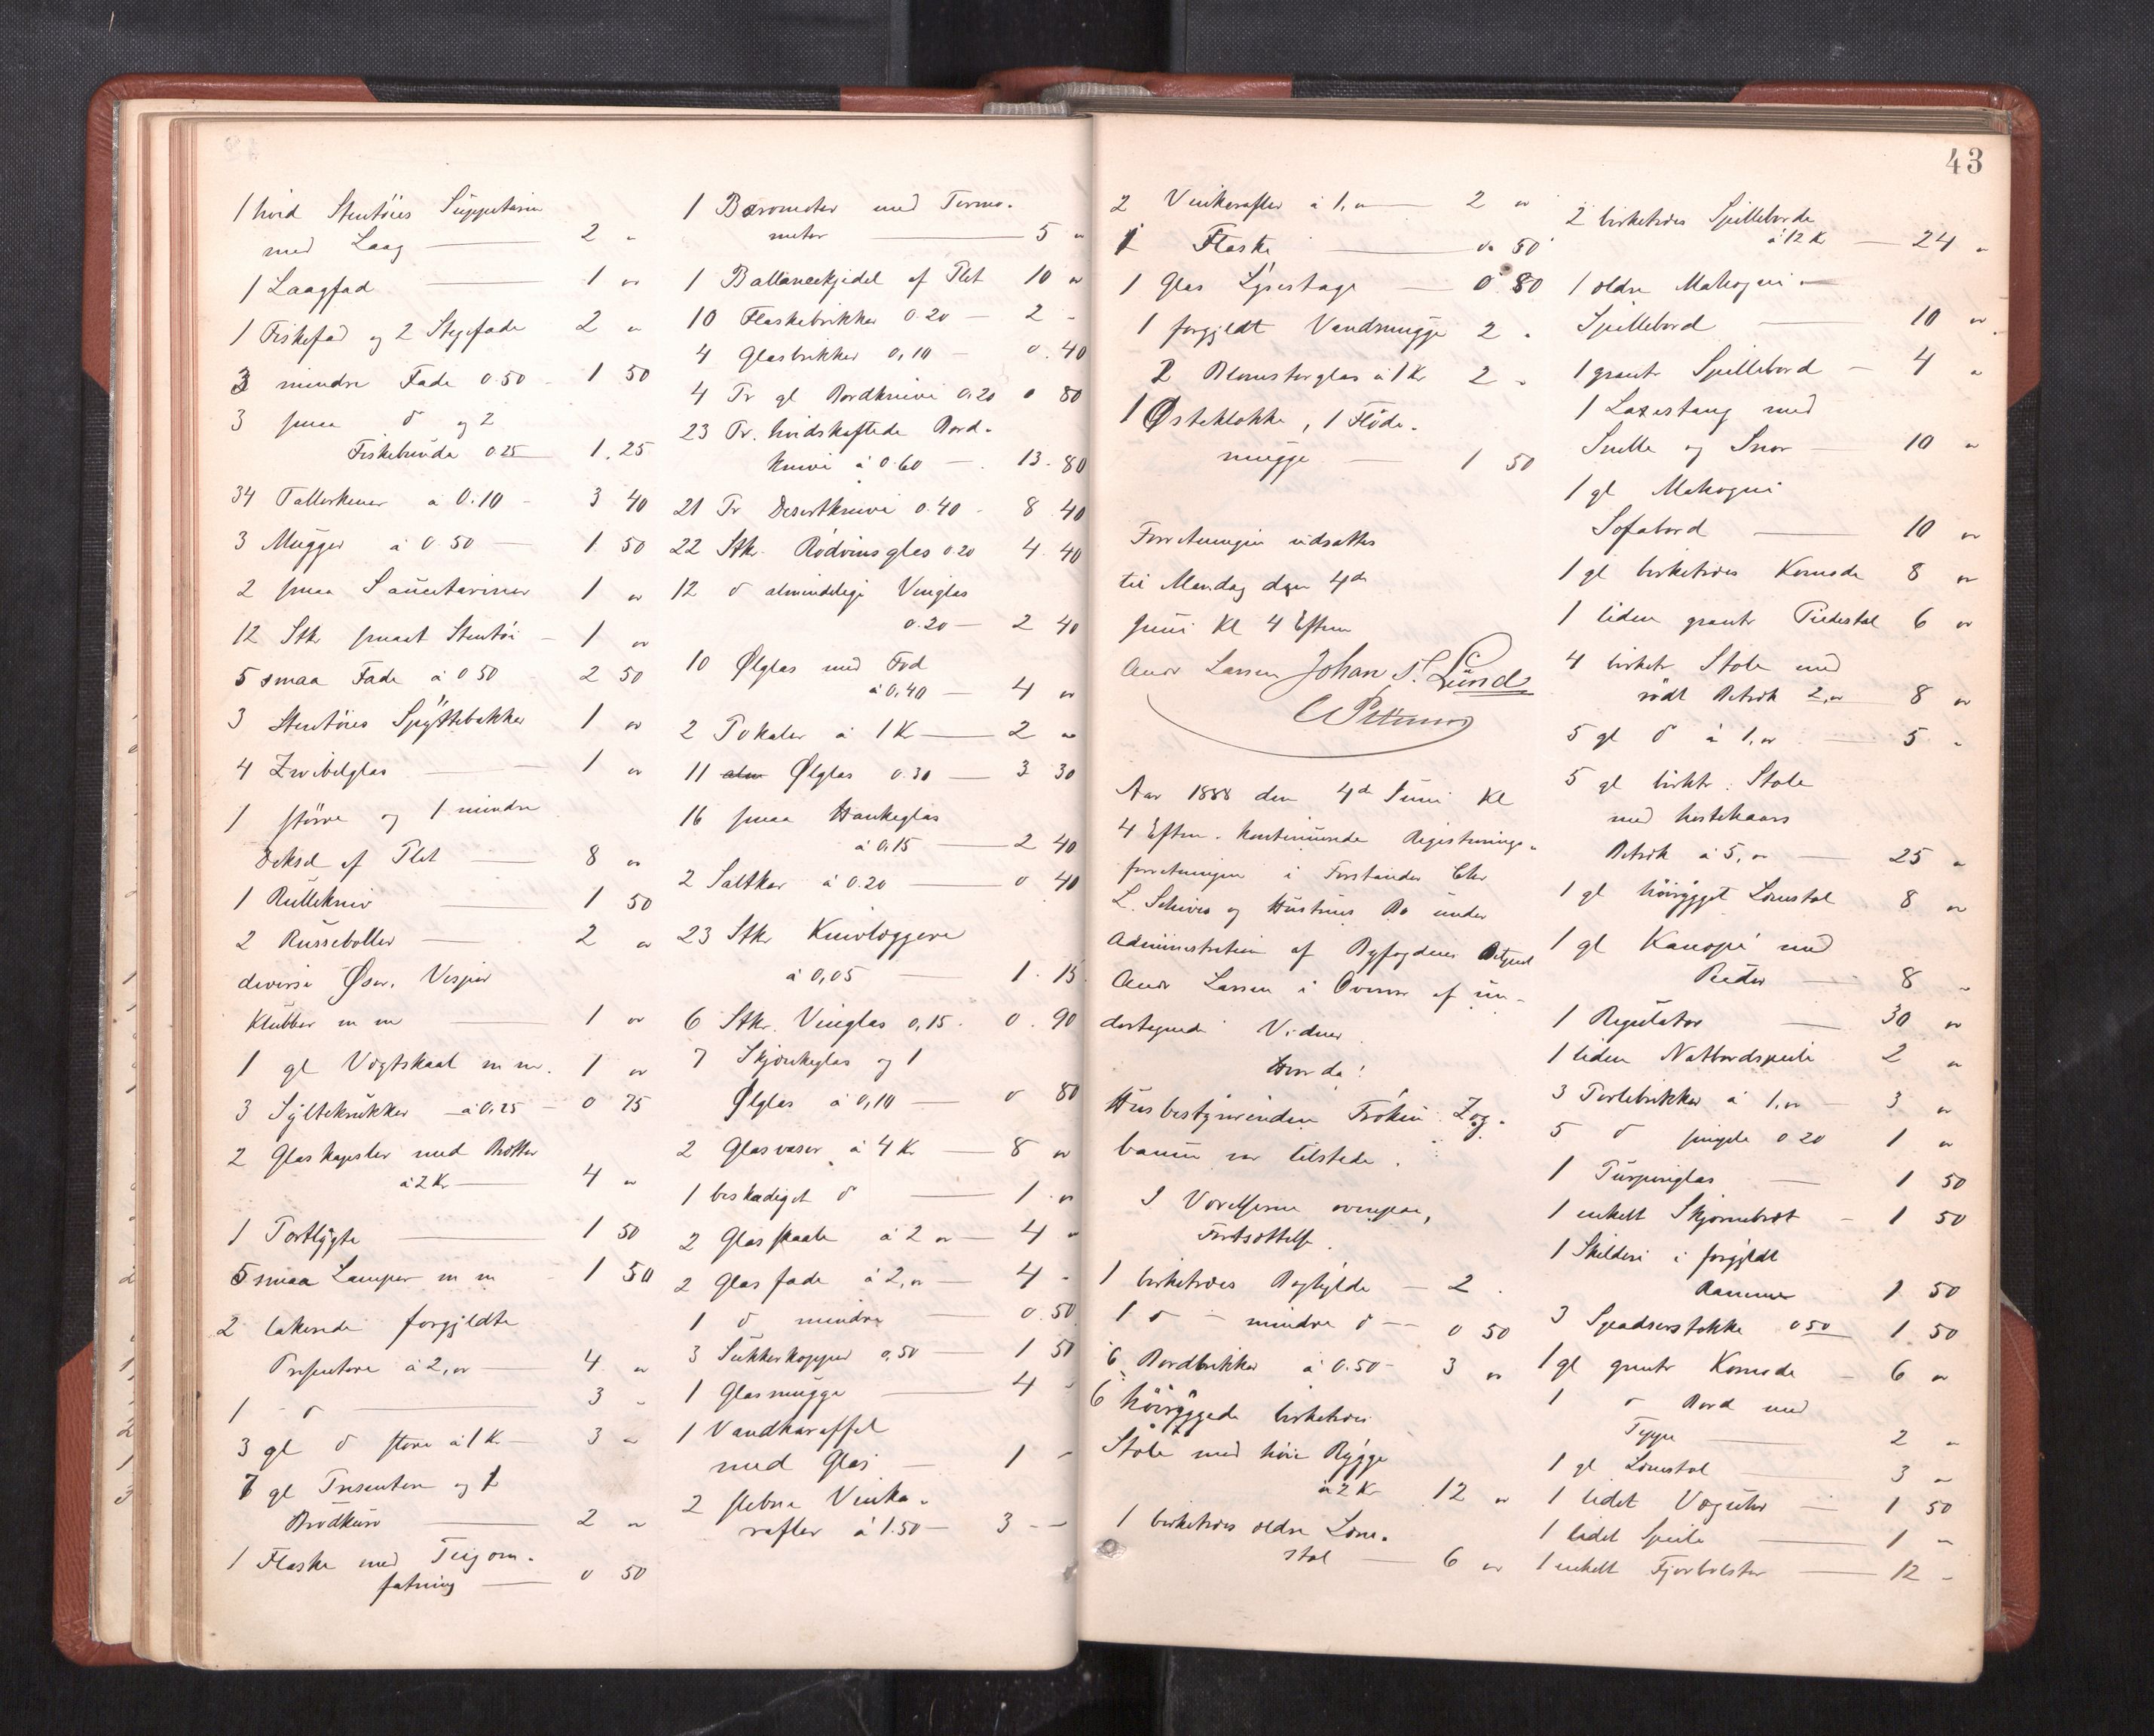 1 hvid Stentöies Suppeterin
med Laag — 2 "
1 Laagfad — 1 "
1 Fiskefad og 2 Stegefade 2 "
3 mindre Fade 0.50 - 1 50
3 smaa do og 2
Fiskebunde 0.25 1.25
34 Tallerkener a 0.10 - 3 40
3 Mugger à 0.50 — 1. 50
2 smaa Sauceteriner 1 "
12 Stk smaat Stentöi - 1 "
5 smaa Fade à 0 50 2 50
3 Stentöies Spyttebakker 1 "
4 Zwibelglas — 1 "
1 större og 1 mindre
Deksel af Plet — 8 "
1 Rullekniv — 1 50
2 Russeboller — 2 "
diverse Øser, Visper
Klubber m m — 1 "
1 gl Vægtskaal m m. 1 "
3 Syltekrukker à 0,25 - 0 75
2 Glaskapsler med Potter
à 2 Kr — 4 "
1 Portlygte — 1 50
5 smaa Lamper m m - 1 50
2 lakerede forgyldte
Presentere à 2," — 4 "
1 - do — 3 "
3 gl do store à 1 Kr — 3 "
7 gl Presentere og 1
Brödkurv — 2 "
1 Flaske med Teijom-
fatning — 0 50
1 Barometer med Termo-
meter — 5 "
1 Ballancekjedel af Plet 10 "
10 Flaskebrikker 0.20 — 2 -
4 Glasbrikker 0,10 — 0.40
4 Pr gl Bordknive 0.20 0 80
23 Pr. hvidskaftede Bord-
knive à 0.60 — 13.80
21 Pr Desertknive 0.40 - 8.40
22 Stk. Rödvinsglas 0.20 4.40
12 do almindelige Vinglas
0.20 — 2 40
10 Ølglas med Fod
à 0,40 — 4 "
2 Pokaler à 1 K — 2 "
11 alm Ølglas 0.30 — 3 30
16 smaa Hankeglas
à 0,15 — 2 40
2 Saltkar à 0.20 — 0 40
23 Stk Knivlæggere
à 0,05 — 1. 15
6 Stk. Vinglas 0,15. 0.90
7 Skjænkeglas og 1
Ølglas à 0,10 — 0 80
2 Glasvaser à 4 Kr — 8 "
1 beskadiget do — 1 "
2 Glasskaale à 2 " — 4 "
2 Glasfade à 2," — 4 -
1 do mindre — 0.50
3 Sukkerkopper 0,50 — 1 50
1 Glasmugge — 4 -
1 Vandkaraffel
med Glas — 1 -
2 slebne Vinka-
rafler à 1.50 — 3 -
43
2 Vinkarafler à 1," — 2 "
1 Flaske — " 50
1 Glas Lysestage — 0 80
1 forgyldt Vandmugge 2 -
2 Blomsterglas à 1 Kr 2 -
1 Østeklokke, 1 Flöde-
mugge — 1 50
Forretningen udsattes
til Mandag den 4de
Juni Kl 4 Eftm
Andr Larsen Johan S. Lund
Aar 1888 den 4de Juni Kl
4 Eftm. kontinuerede Registrerings-
forretningen i Forstander Chr
L. Schives og Hustrues Bo under
Administration af Byfogdens Betjent
Andr Larsen i Overvær af un-
dertegnede Vidner
Hvor da!
Husbestyrerinden Fröken Zog-
baum var tilstede.
I Værelserne ovenpaa,
Fortsættelse
1 birketræes Boghylde — 2 .
1 do - mindre do — 0 50
6 Bordbrikker à 0.50 - 3 "
6 höiryggede birketræes
Stole med höie Rygge
à 2 Kr 12 "
1 birketræes ældre Læne-
stol — 6 "
2 birketræes Spilleborde
à 12 Kr — 24 "
1 ældre Mahogni -
Spillebord — 10 "
1 grantr Spillebord — 4 "
1 Laxestang med
Snelle og Snor — 10 "
1 gl Mahogni
Sofabord — 10 "
1 gl birketræes Komode 8 "
1 liden grantr Piedestal 6 "
4 birketr Stole med
rödt Betræk 2," 8 "
5 gl do à 1," — 5 -
5 gl birktr: Stole
med hestehaars
Betræk à 5," — 25 "
1 gl höirygget Lænestol 8 "
1 gl Kanapé med
Puder — 8 -
1 Regulator — 30 "
1 liden Natbordspeile 2 "
3 Perlebrikker à 1," — 3 "
5 do simple 0.20 1 "
1 Punschglas — 1 50
1 enkelt Skjærmebræt - 1 50
1 Skilderi i forgyldt
Rammer 1 50
3 Spadserstokke 0 50 1 50
1 gl grantr Komode - 6 "
1 do Bord med
Teppe — 2 "
1 gl Lænestol — 3 "
1 lidet Væguhr — 1 50
1 lidet Speile — 1 "
1 enkelt Fjærbolster — 12 -